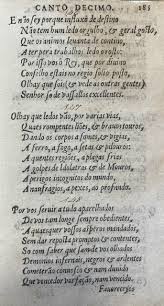 CANTO DECIMO. 185
E não sey porque influxo de destino
Não tem hum ledo orgulho, & geral gosto,
Que os animos levanta de contino,
A ter pera trabalhos ledo o rosto:
Por isso vós ò Rey, que por divino
Conselho estais no regio solio posto,
Olhay que sois (& vede as outras gentes)
Senhor só de vassallos excellentes.
Olhay que ledos vão, por varias vias,
Quaes rompentes liões, & bravos touros,
Dando os corpos a fomes, & vigias,
A ferro, a fogo, a setas, & pilouros:
A quentes regiões, a plagas frias
A golpes de Idolatras, & de Mouros,
A perigos incognitos do mundo
A naufragios, a pexes, ao profundo.
Por vos servir a tudo aparelhados
De vos tam longe sempre obedientes,
A quaesquer vossos asperos mandados,
Sem dar reposta promptos, & contentes,
So com saber que sam de vos olhados,
Demonios infernaes, negros, & ardentes
Cometerão convosco, & não duvido
Que vencedor vos fação, não vencido.
Favorecey os